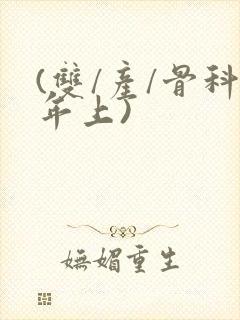 (雙/產/骨科
年上)
嫵媚重生